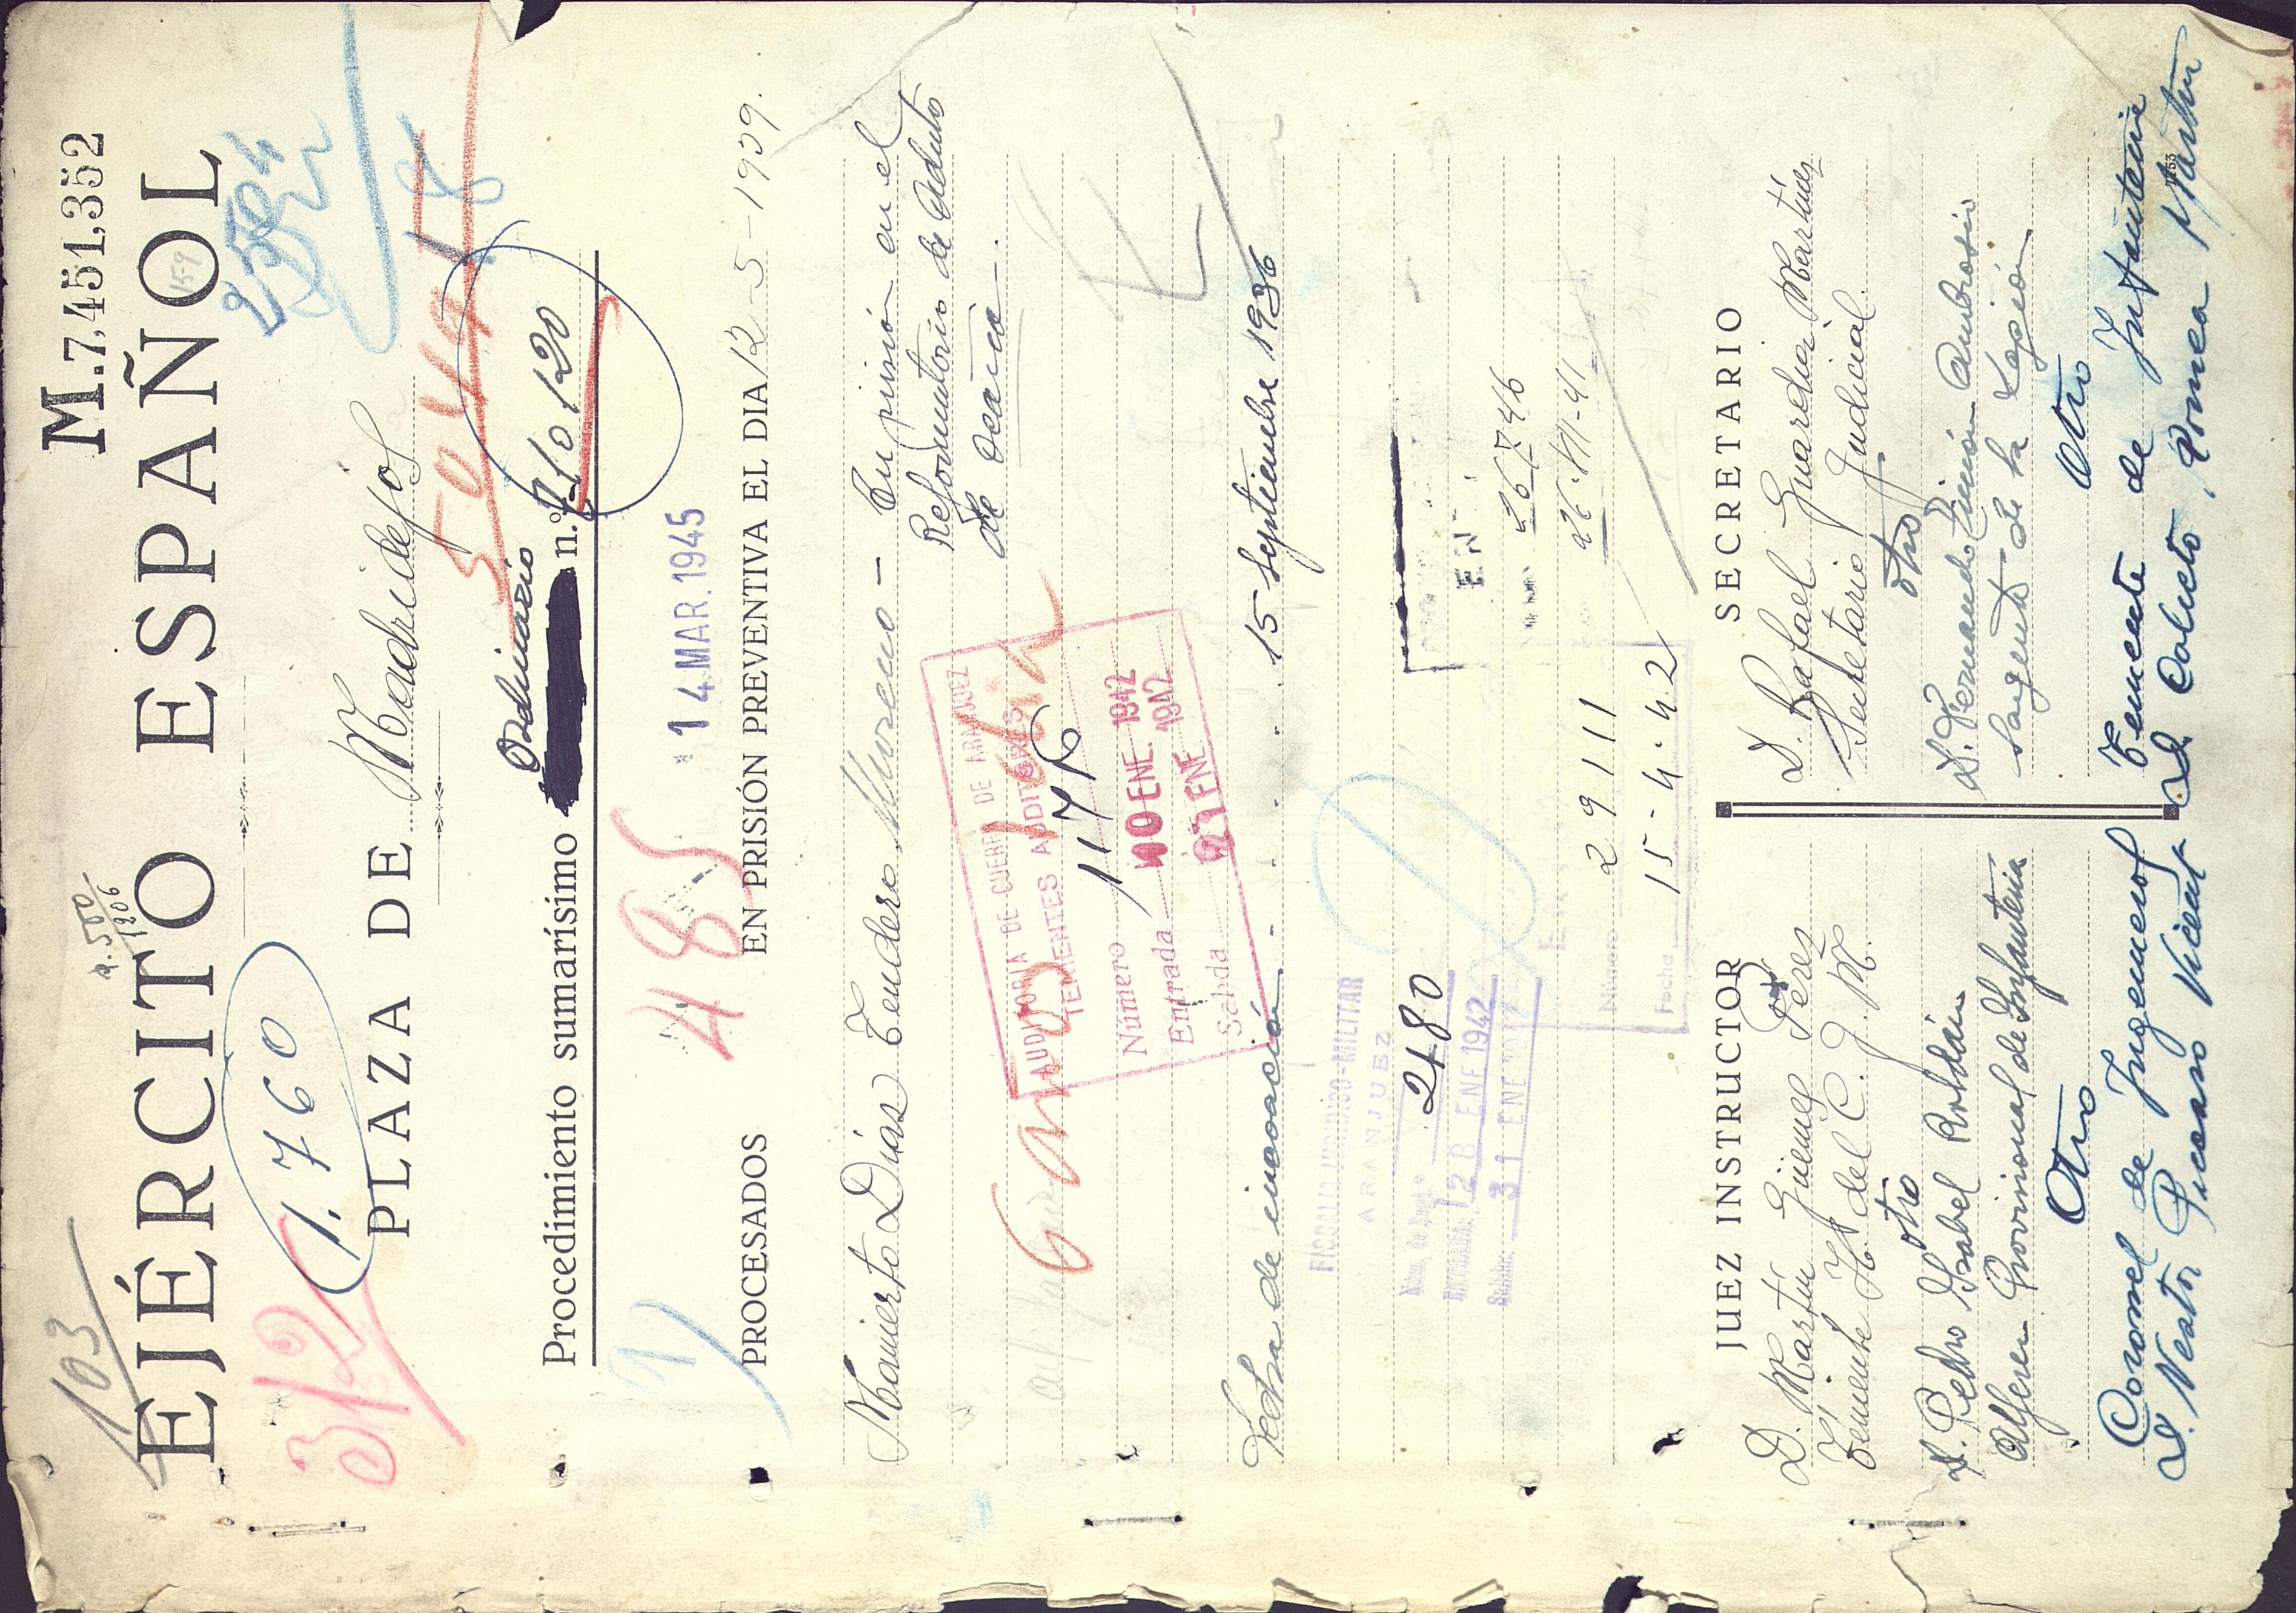 M.7.451,352
103
9.500
1906
EJÉRCITO ESPAÑOL
159
1.760
312
PLAZA DE Madridejos
50448
Ordinario
Procedimiento sumarísimo n.º 10120
14 MAR. 1945
485
PROCESADOS EN PRISIÓN PREVENTIVA EL DIA 12-5-1939.
Mamerto Díaz Tendero Moreno — En prisión en el
Reformatorio de Adultos
de Ocaña.
AUDITORIA DE GUERRA DE ARANJUEZ
TENIENTES AUDITORES
Número 1176
Entrada 10 ENE. 1942
Salida 27 ENE 1942
Fecha de incoación 15 Septiembre 1936
FISCALIA JURIDICO-MILITAR
ARANJUEZ
2480
28 ENE 1942
Salida 31 ENE 1942
EN
26746
26-VII-41
Número 29111
Fecha 15-4-42
JUEZ INSTRUCTOR
D. Martín Güemes Perez
Teniente H. del C. J. M.
otro
D. Pedro Isabel Roldán
Alferez Provisional de Infantería
Otro
Coronel de Ingenieros
D. Nestor Picasso Vicent
SECRETARIO
D. Rafael Guardia Martínez
Secretario Judicial.
otro
D. Fernando Simón Ambrosio
Sargento de la Legión
Otro
Teniente de Infantería
D. Calixto Romea Martín